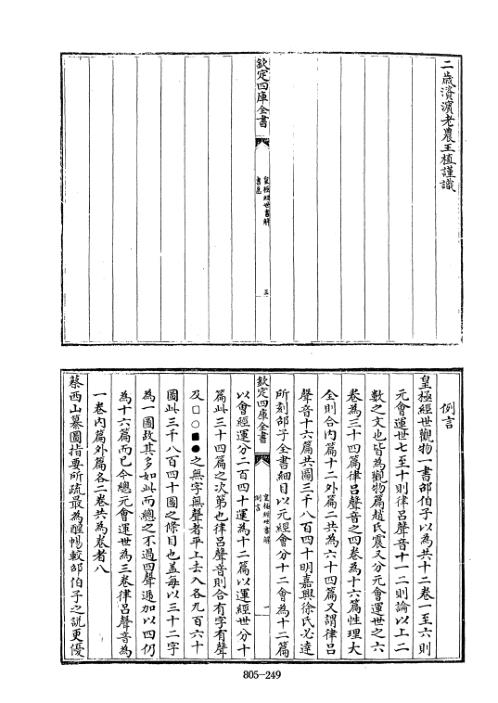 二歲濱濱老農王植謹識
欽定四庫全書
皇極經世書解
書意
五
例言
皇極經世觀物一書邵伯子以為共十二卷一至六則
元會運世七至十則律呂聲音十一二則論以上二
數之文也皆為觀物篇趙氏震又分元會運世之六
卷為三十四篇律呂聲音之四卷為十六篇性理大
全則合內篇十二外篇二共為六十四篇又謂律呂
聲音十六篇共圖三千八百四十明嘉興徐氏必達
所刻邵子全書細目以元經會分十二會為十二篇
欽定四庫全書
皇極經世書解
例言
一
以會經運分二百四十運為十二篇以運經世分十
篇此三十四篇之次第也律呂聲音則合有字有聲
及□○■●之無字無聲者平上去入各九百六十
圖此三千八百四十圖之條目也蓋每以三十二字
為一圖故其多如此而總之不過四聲遞加以四仍
為十六篇而已今總元會運世為三卷律呂聲音為
一卷內篇外篇各二卷共為卷者八
蔡西山纂圖指要所疏最為醒暢較邵伯子之說更優
805-249